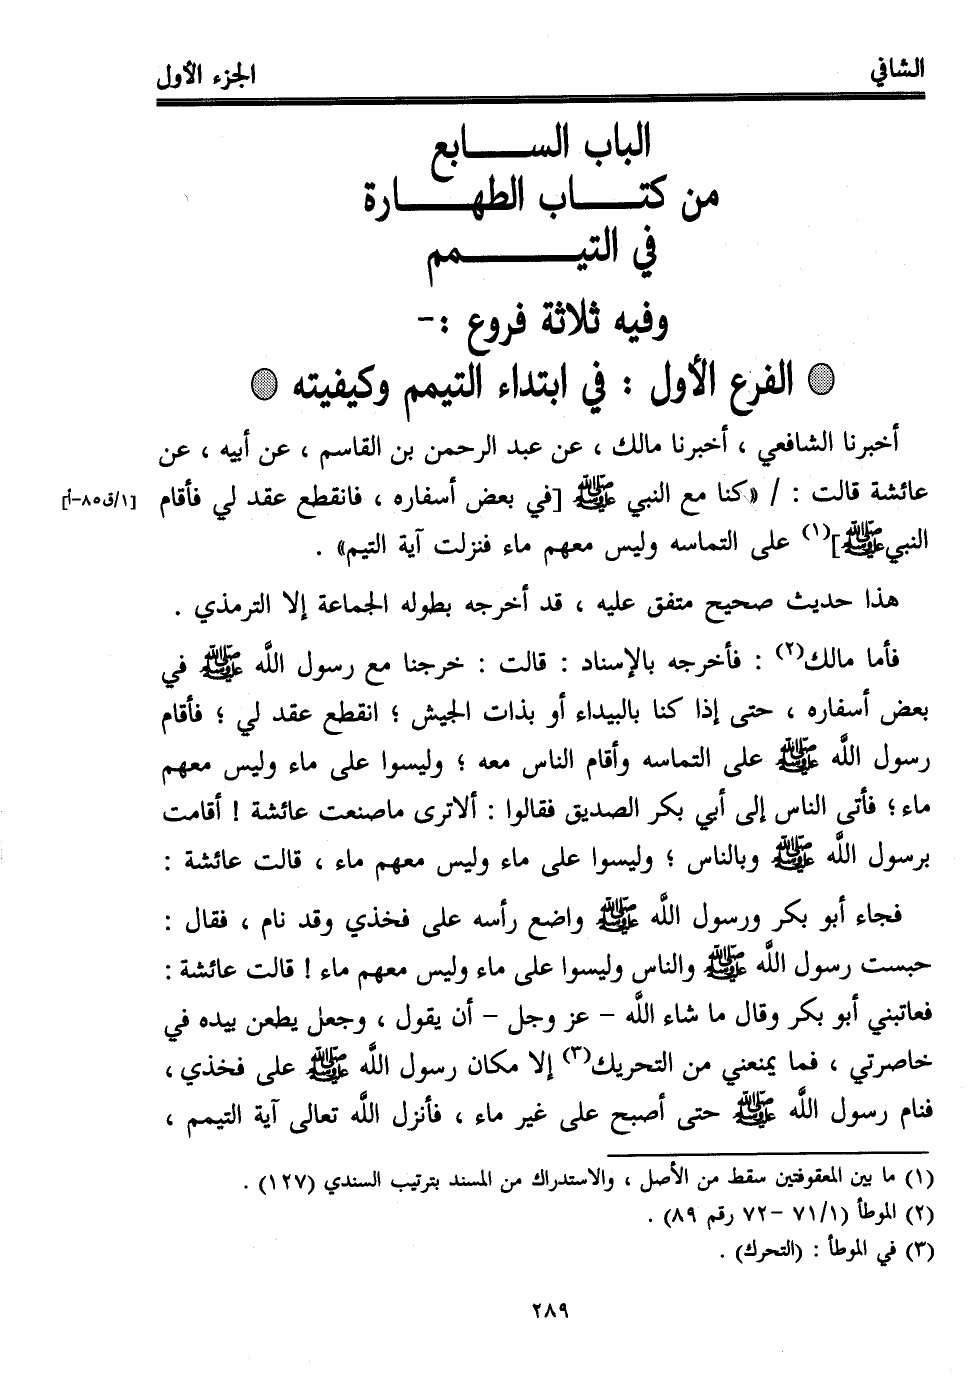 الشافي
الجزء الأول
الباب الســـــابع
من كتـــــاب الطهـــــارة
في التيـــــــــمم
وفيه ثلاثة فروع :-
الفرع الأول : في ابتداء التيمم وكيفيته
أخبرنا الشافعي ، أخبرنا مالك ، عن عبد الرحمن بن القاسم ، عن أبيه ، عن
عائشة قالت : / «كنا مع النبي ﷺ [في بعض أسفاره ، فانقطع عقد لي فأقام [١/ق٨٥-أ]
النبي ﷺ](١) على التماسه وليس معهم ماء فنزلت آية التيم» .
هذا حديث صحيح متفق عليه ، قد أخرجه بطوله الجماعة إلا الترمذي .
فأما مالك(٢) : فأخرجه بالإسناد : قالت : خرجنا مع رسول اللَّه ﷺ في
بعض أسفاره ، حتى إذا كنا بالبيداء أو بذات الجيش ؛ انقطع عقد لي ؛ فأقام
رسول اللَّه ﷺ على التماسه وأقام الناس معه ؛ وليسوا على ماء وليس معهم
ماء ؛ فأتى الناس إلى أبي بكر الصديق فقالوا : ألاترى ماصنعت عائشة ! أقامت
برسول اللَّه ﷺ وبالناس ؛ وليسوا على ماء وليس معهم ماء ، قالت عائشة :
فجاء أبو بكر ورسول اللَّه ﷺ واضع رأسه على فخذي وقد نام ، فقال :
حبست رسول اللَّه ﷺ والناس وليسوا على ماء وليس معهم ماء ! قالت عائشة :
فعاتبني أبو بكر وقال ما شاء اللَّه - عز وجل - أن يقول ، وجعل يطعن بيده في
خاصرتي ، فما يمنعني من التحريك(٣) إلا مكان رسول اللَّه ﷺ على فخذي ،
فنام رسول اللَّه ﷺ حتى أصبح على غير ماء ، فأنزل اللَّه تعالى آية التيمم ،
(١) ما بين المعقوفتين سقط من الأصل ، والاستدراك من المسند بترتيب السندي (١٢٧) .
(٢) الموطأ (١/ ٧١ -٧٢ رقم ٨٩) .
(٣) في الموطأ : (التحرك) .
٢٨٩